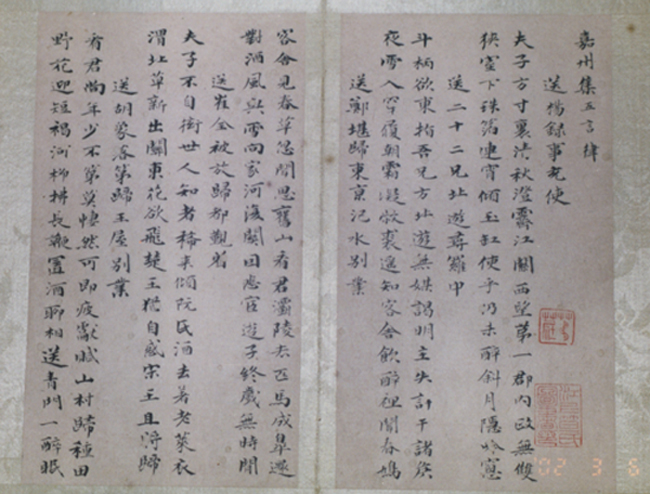 嘉州集五言律
送楊録事充使
夫子方寸裏清秋澄霽江關西望第一郡內政無雙
狹室下珠箔連宵傾玉缸使乎仍未醉斜月隱吟窻
送二十二兄北遊尋羅中
斗柄欲東指吾兄方北遊無媒謁明主失計干諸侯
夜雪入穿履朝霜凝敝裘遥知客舍飲醉裡聞春鳩
送鄭堪歸東京汜水別業
客舍見春草忽聞思舊山看君灞陵去匹馬成皋還
對酒風與雪向家河復關因悲宦遊子終歲無時閒
送崔全被放歸都覲省
夫子不自衒世人知者稀來傾阮氏酒去著老萊衣
渭北草新出關東花欲飛楚王猶自惑宋玉且將歸
送胡象落第歸王屋別業
看君尚年少不第莫悽然可即疲獻賦山村歸種田
野花迎短褐河柳拂長鞭置酒聊相送青門一醉眠
02 3 6